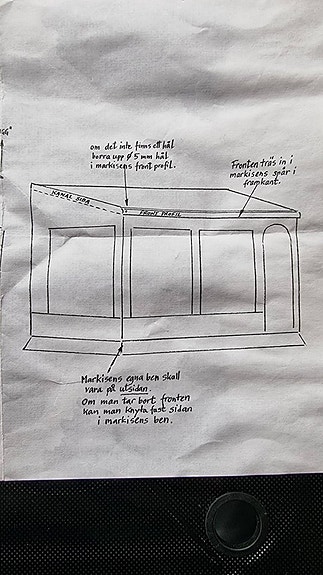 om det inte finns ett hål
borra upp Ø 5 mm hål
i markisens front profil.
Fronten träs in i
markisens spår i
framkant.
KANAL SIDA
FRONT PROFIL
Markisens egna ben skall
vara på utsidan.
Om man tar bort fronten
kan man knyta fast sidan
i markisens ben.